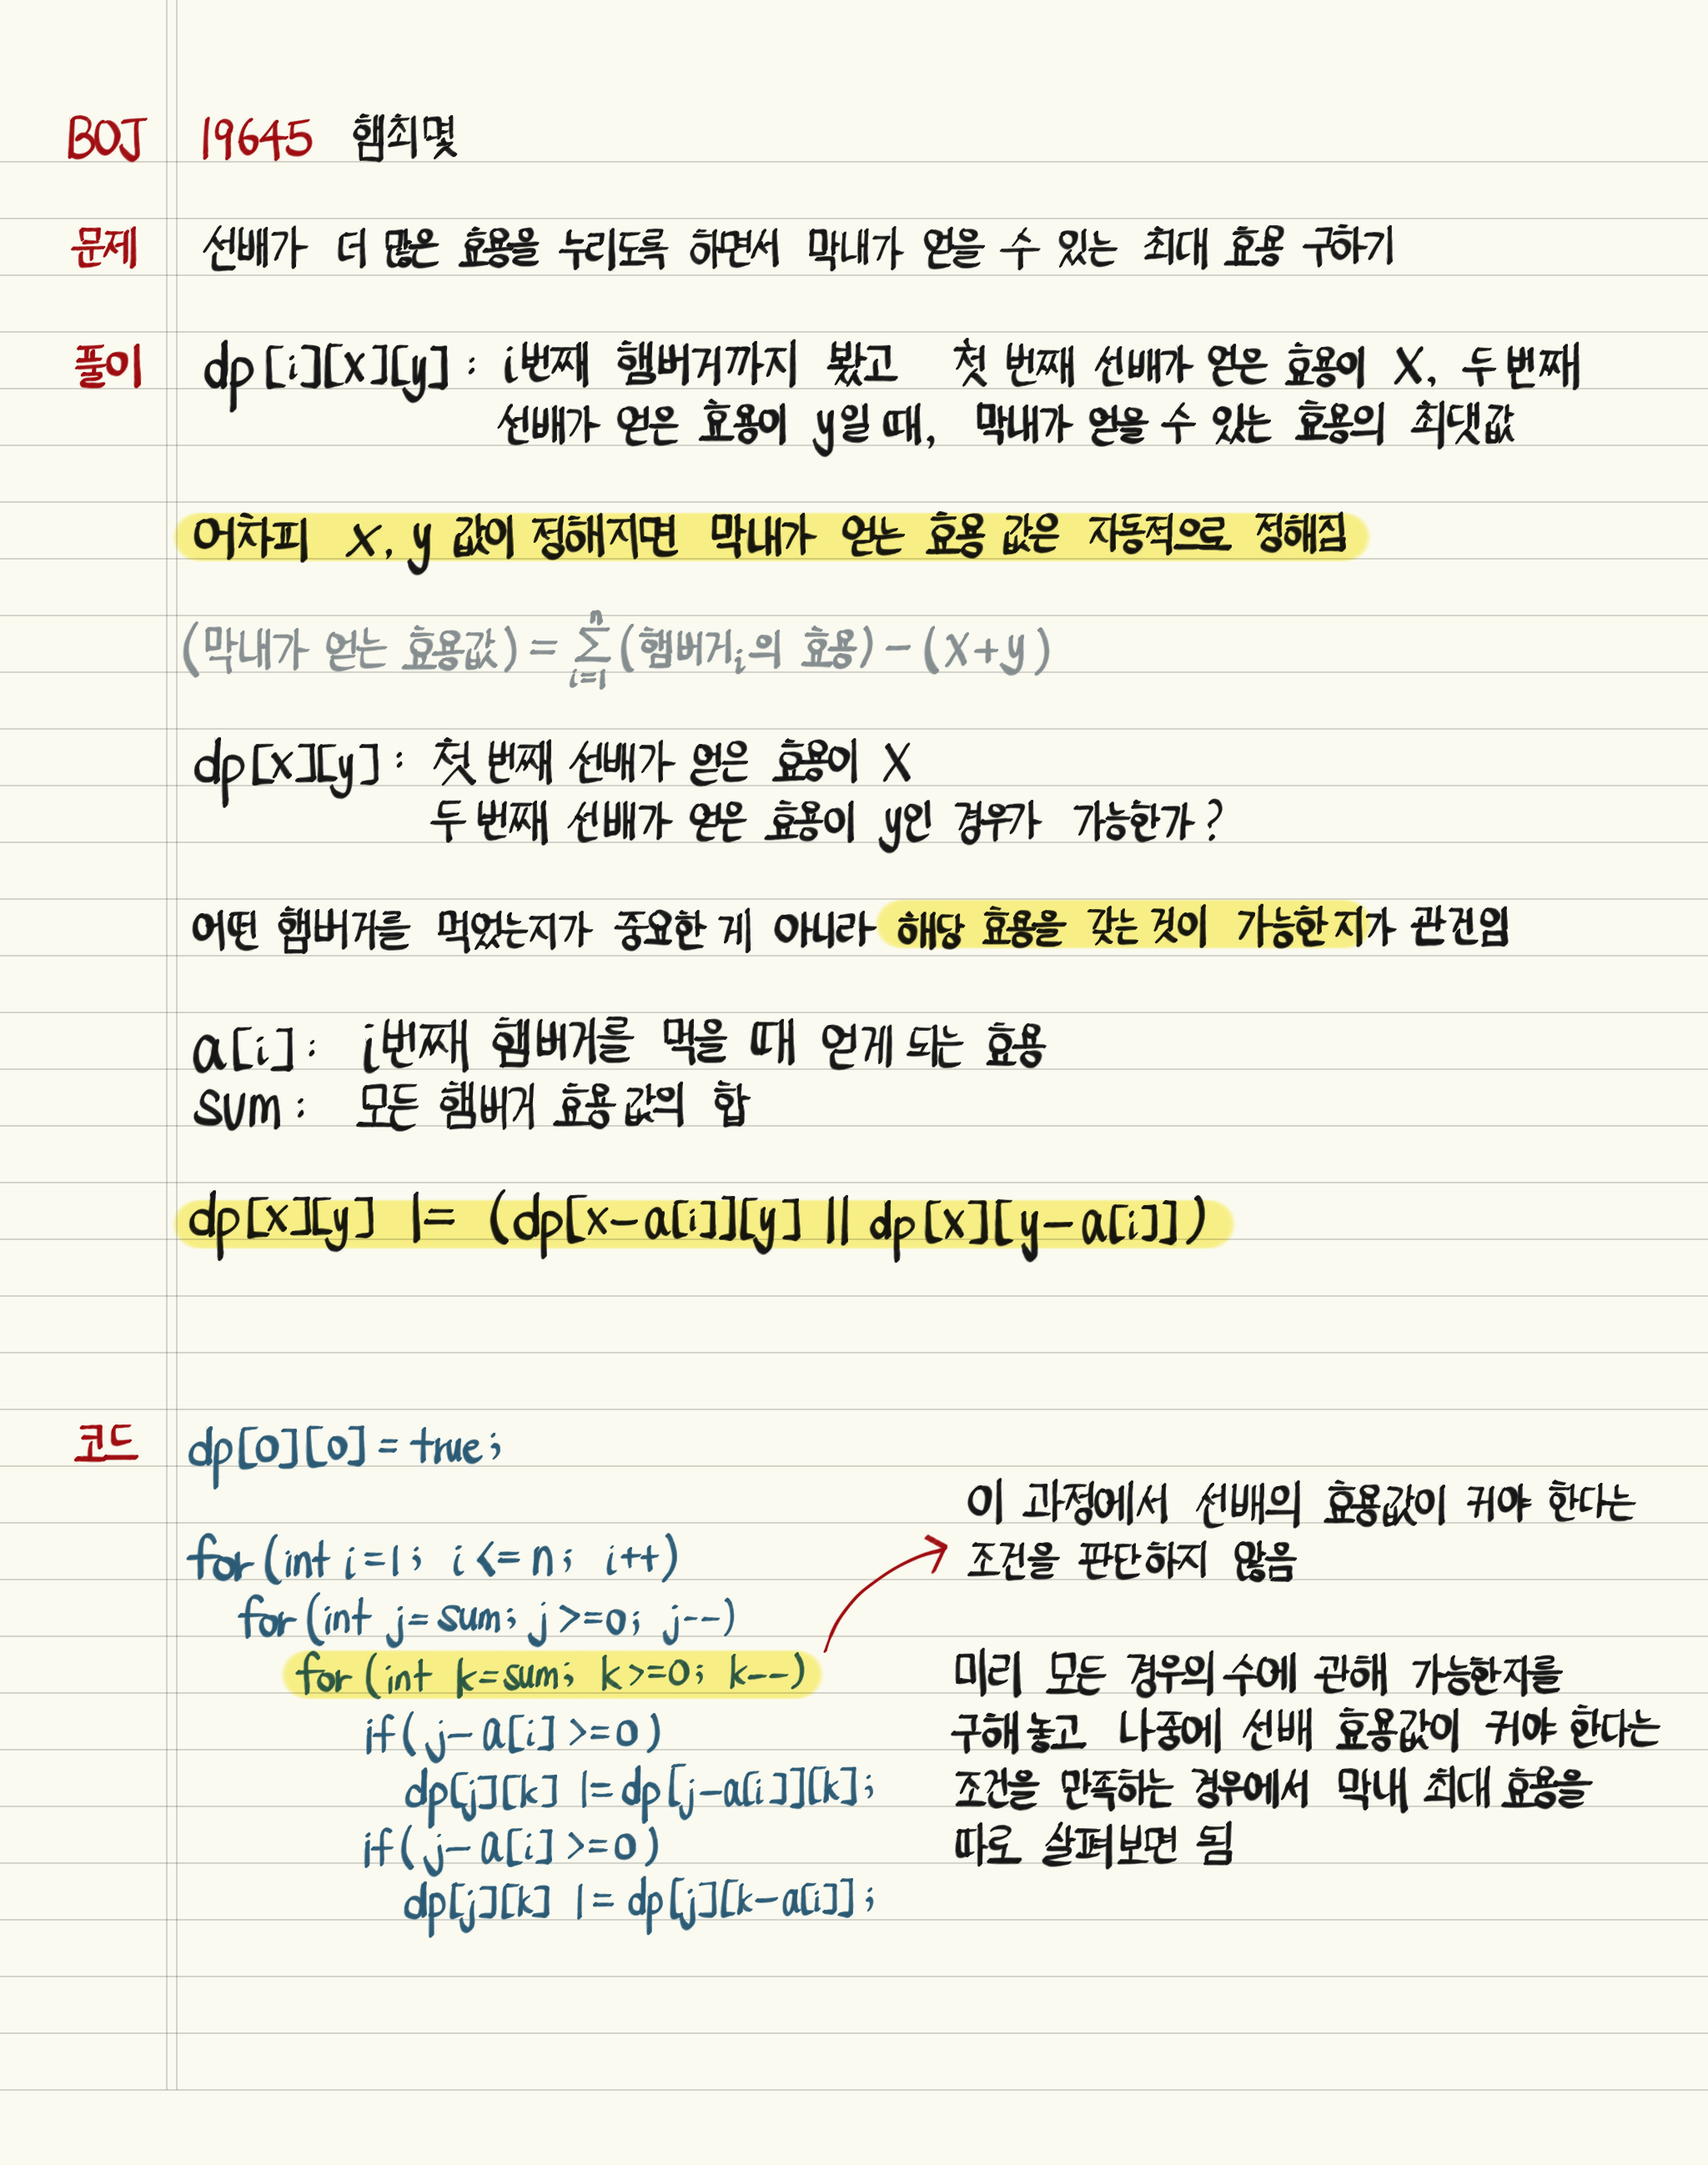 BOJ 19645 햄최몇
문제 선배가 더 많은 효용을 누리도록 하면서 막내가 얻을 수 있는 최대 효용 구하기
풀이 dp[i][x][y] : i번째 햄버거까지 봤고 첫 번째 선배가 얻은 효용이 x, 두 번째
선배가 얻은 효용이 y일 때, 막내가 얻을 수 있는 효용의 최댓값
어차피 x, y 값이 정해지면 막내가 얻는 효용 값은 자동적으로 정해짐
(막내가 얻는 효용값) = \sum_{i=1}^{n} (햄버거_i의 효용) - (x+y)
dp[x][y] : 첫 번째 선배가 얻은 효용이 x
두 번째 선배가 얻은 효용이 y인 경우가 가능한가?
어떤 햄버거를 먹었는지가 중요한 게 아니라 해당 효용을 갖는 것이 가능한지가 관건임
a[i] : i번째 햄버거를 먹을 때 얻게 되는 효용
sum : 모든 햄버거 효용 값의 합
dp[x][y] |= (dp[x-a[i]][y] || dp[x][y-a[i]])
코드 dp[0][0] = true;
for (int i=1; i <= n; i++)
for (int j=sum; j >=0; j--)
for (int k=sum; k >=0; k--)
if ( j- a[i] >=0 )
dp[j][k] |= dp[j-a[i]][k];
if ( j- a[i] >=0 )
dp[j][k] |= dp[j][k-a[i]];
이 과정에서 선배의 효용값이 커야 한다는
조건을 판단하지 않음
미리 모든 경우의 수에 관해 가능한지를
구해 놓고 나중에 선배 효용값이 커야 한다는
조건을 만족하는 경우에서 막내 최대 효용을
따로 살펴보면 됨